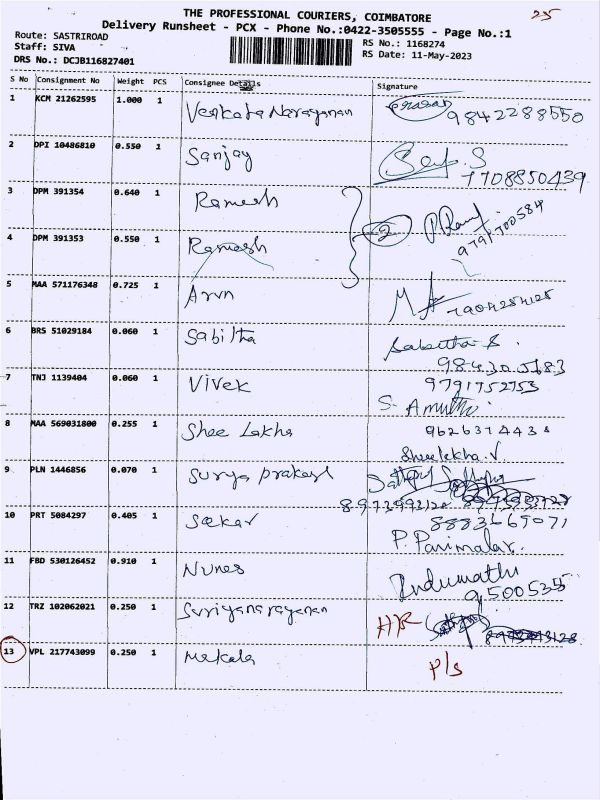 THE PROFESSIONAL COURIERS, COIMBATORE
25
Delivery Runsheet - PCX - Phone No.:0422-3505555 - Page No.:1
Route: SASTRIROAD
RS No.: 1168274
Staff: SIVA
RS Date: 11-May-2023
DRS No.: DCJB116827401
S No Consignment No Weight PCS Consignee Details Signature
1 KCM 21262595 1.000 1 Venkata Narayanan
9842288550
2 DPI 10486810 0.550 1 Sanjay
7708850439
3 DPM 391354 0.640 1 Ramesh
2
9791700584
4 DPM 391353 0.550 1 Ramesh
5 MAA 571176348 0.725 1 Arun
6 BRS 51029184 0.060 1 Sabitha
Sabitha S.
7 TNJ 1139404 0.060 1 Vivek 9791752753
S. Amuthi
8 MAA 569031800 0.255 1 Shee Lekha
Sheelekha.V.
9 PLN 1446856 0.070 1 Surya prakash
8973993128
10 PRT 5084297 0.405 1 Sekar 8883669071
P. Parimalar.
11 FBD 530126452 0.910 1 Nunes Indumathi
9500535
12 TRZ 102062021 0.250 1 Suriyanarayanan
13 VPL 217743099 0.250 1 Mekala P/s